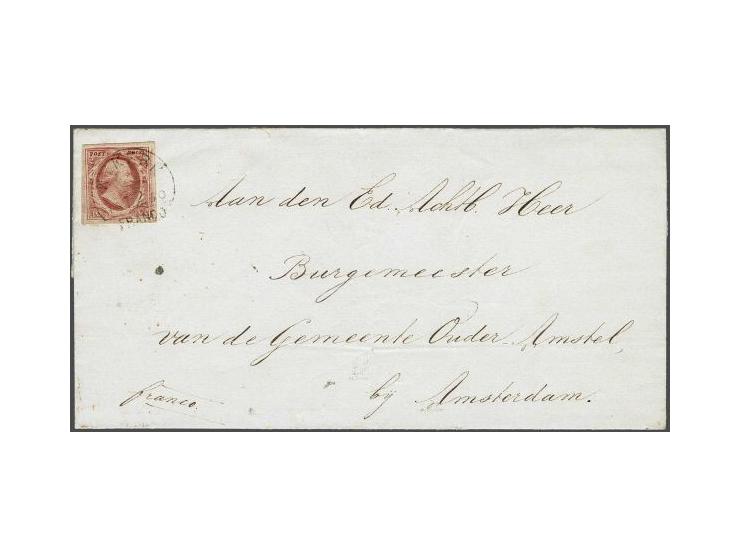 POST
FRANCO
Aan den Ed. Achtb. Heer
Burgemeester
van de Gemeente Ouder-Amstel,
bij Amsterdam.
franco.